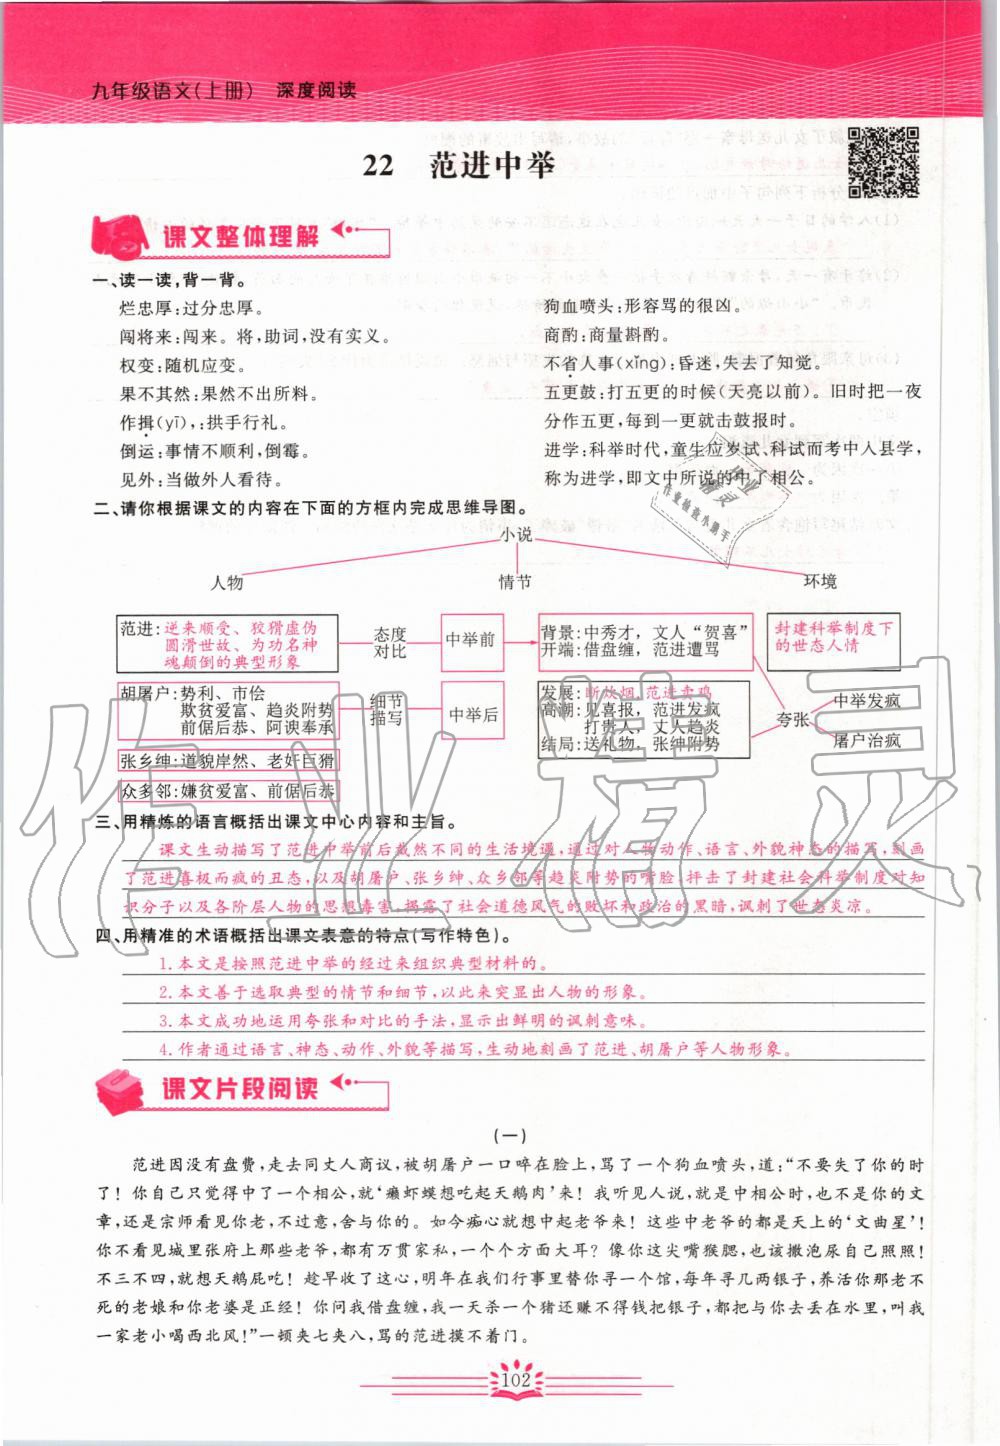 九年级语文(上册) 深度阅读
22 范进中举
课文整体理解
一、读一读,背一背。
烂忠厚:过分忠厚。
闯将来:闯来。将,助词,没有实义。
权变:随机应变。
果不其然:果然不出所料。
作揖(yī),:拱手行礼。
倒运:事情不顺利,倒霉。
见外:当做外人看待。
狗血喷头:形容骂的很凶。
商酌:商量斟酌。
不省人事(xǐng):昏迷,失去了知觉。
五更鼓:打五更的时候(天亮以前)。旧时把一夜
分作五更,每到一更就击鼓报时。
进学:科举时代,童生应岁试、科试而考中人县学,
称为进学,即文中所说的中了相公。
二、请你根据课文的内容在下面的方框内完成思维导图。
小说
人物 情节 环境
范进:逆来顺受、狡猾虚伪
圆滑世故、为功名神
魂颠倒的典型形象
态度
对比
中举前
背景:中秀才,文人“贺喜”
开端:借盘缠,范进遭骂
封建科举制度下
的世态人情
胡屠户:势利、市侩
欺贫爱富、趋炎附势
前倨后恭、阿谀奉承
细节
描写
中举后
发展:断炊烟 范进卖鸡
高潮:见喜报,范进发疯
打贵人,丈人趋炎
结局:送礼物,张绅附势
夸张
中举发疯
屠户治疯
张乡绅:道貌岸然、老奸巨猾
众乡邻:嫌贫爱富、前倨后恭
三、用精炼的语言概括出课文中心内容和主旨。
课文生动描写了范进中举前后截然不同的生活境遇,通过对人物动作、语言、外貌神态的描写,刻画
了范进喜极而疯的丑态,以及胡屠户、张乡绅、众乡邻等趋炎附势的嘴脸,抨击了封建社会科举制度对知
识分子以及各阶层人物的思想毒害,揭露了社会道德风气的败坏和政治的黑暗,讽刺了世态炎凉。
四、用精准的术语概括出课文表意的特点(写作特色)。
1.本文是按照范进中举的经过来组织典型材料的。
2.本文善于选取典型的情节和细节,以此来突显出人物的形象。
3.本文成功地运用夸张和对比的手法,显示出鲜明的讽刺意味。
4.作者通过语言、神态、动作、外貌等描写,生动地刻画了范进、胡屠户等人物形象。
课文片段阅读
(一)
范进因没有盘费,走去同丈人商议,被胡屠户一口啐在脸上,骂了一个狗血喷头,道:“不要失了你的时
了！你自己只觉得中了一个相公,就‘癞虾蟆想吃起天鹅肉’来！我听见人说,就是中相公时,也不是你的文
章,还是宗师看见你老,不过意,舍与你的。如今痴心就想中起老爷来！这些中老爷的都是天上的‘文曲星’！
你不看见城里张府上那些老爷,都有万贯家私,一个个方面大耳？像你这尖嘴猴腮,也该撒泡尿自己照照！
不三不四,就想天鹅屁吃！趁早收了这心,明年在我们行事里替你寻一个馆,每年寻几两银子,养活你那老不
死的老娘和你老婆是正经！你问我借盘缠,我一天杀一个猪还赚不得钱把银子,都把与你去丢在水里,叫我
一家老小喝西北风！”一顿夹七夹八,骂的范进摸不着门。
102
作业精灵
作业检查小助手
作业精灵